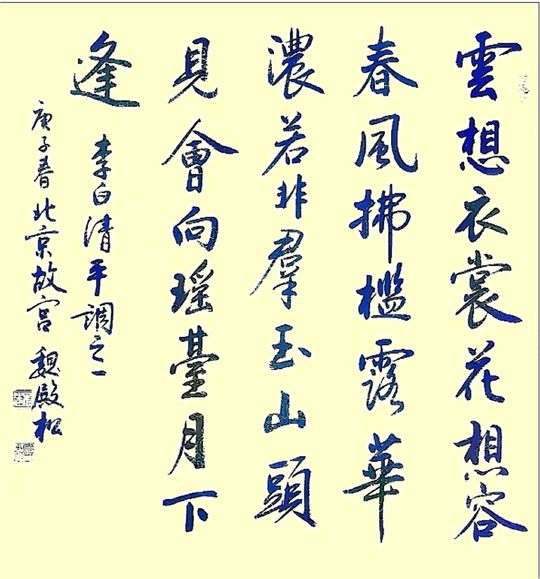 雲想衣裳花想容
春風拂檻露華
濃若非羣玉山頭
見會向瑤臺月下
逢
李白清平調之一
庚子春北京故宮魏殿松